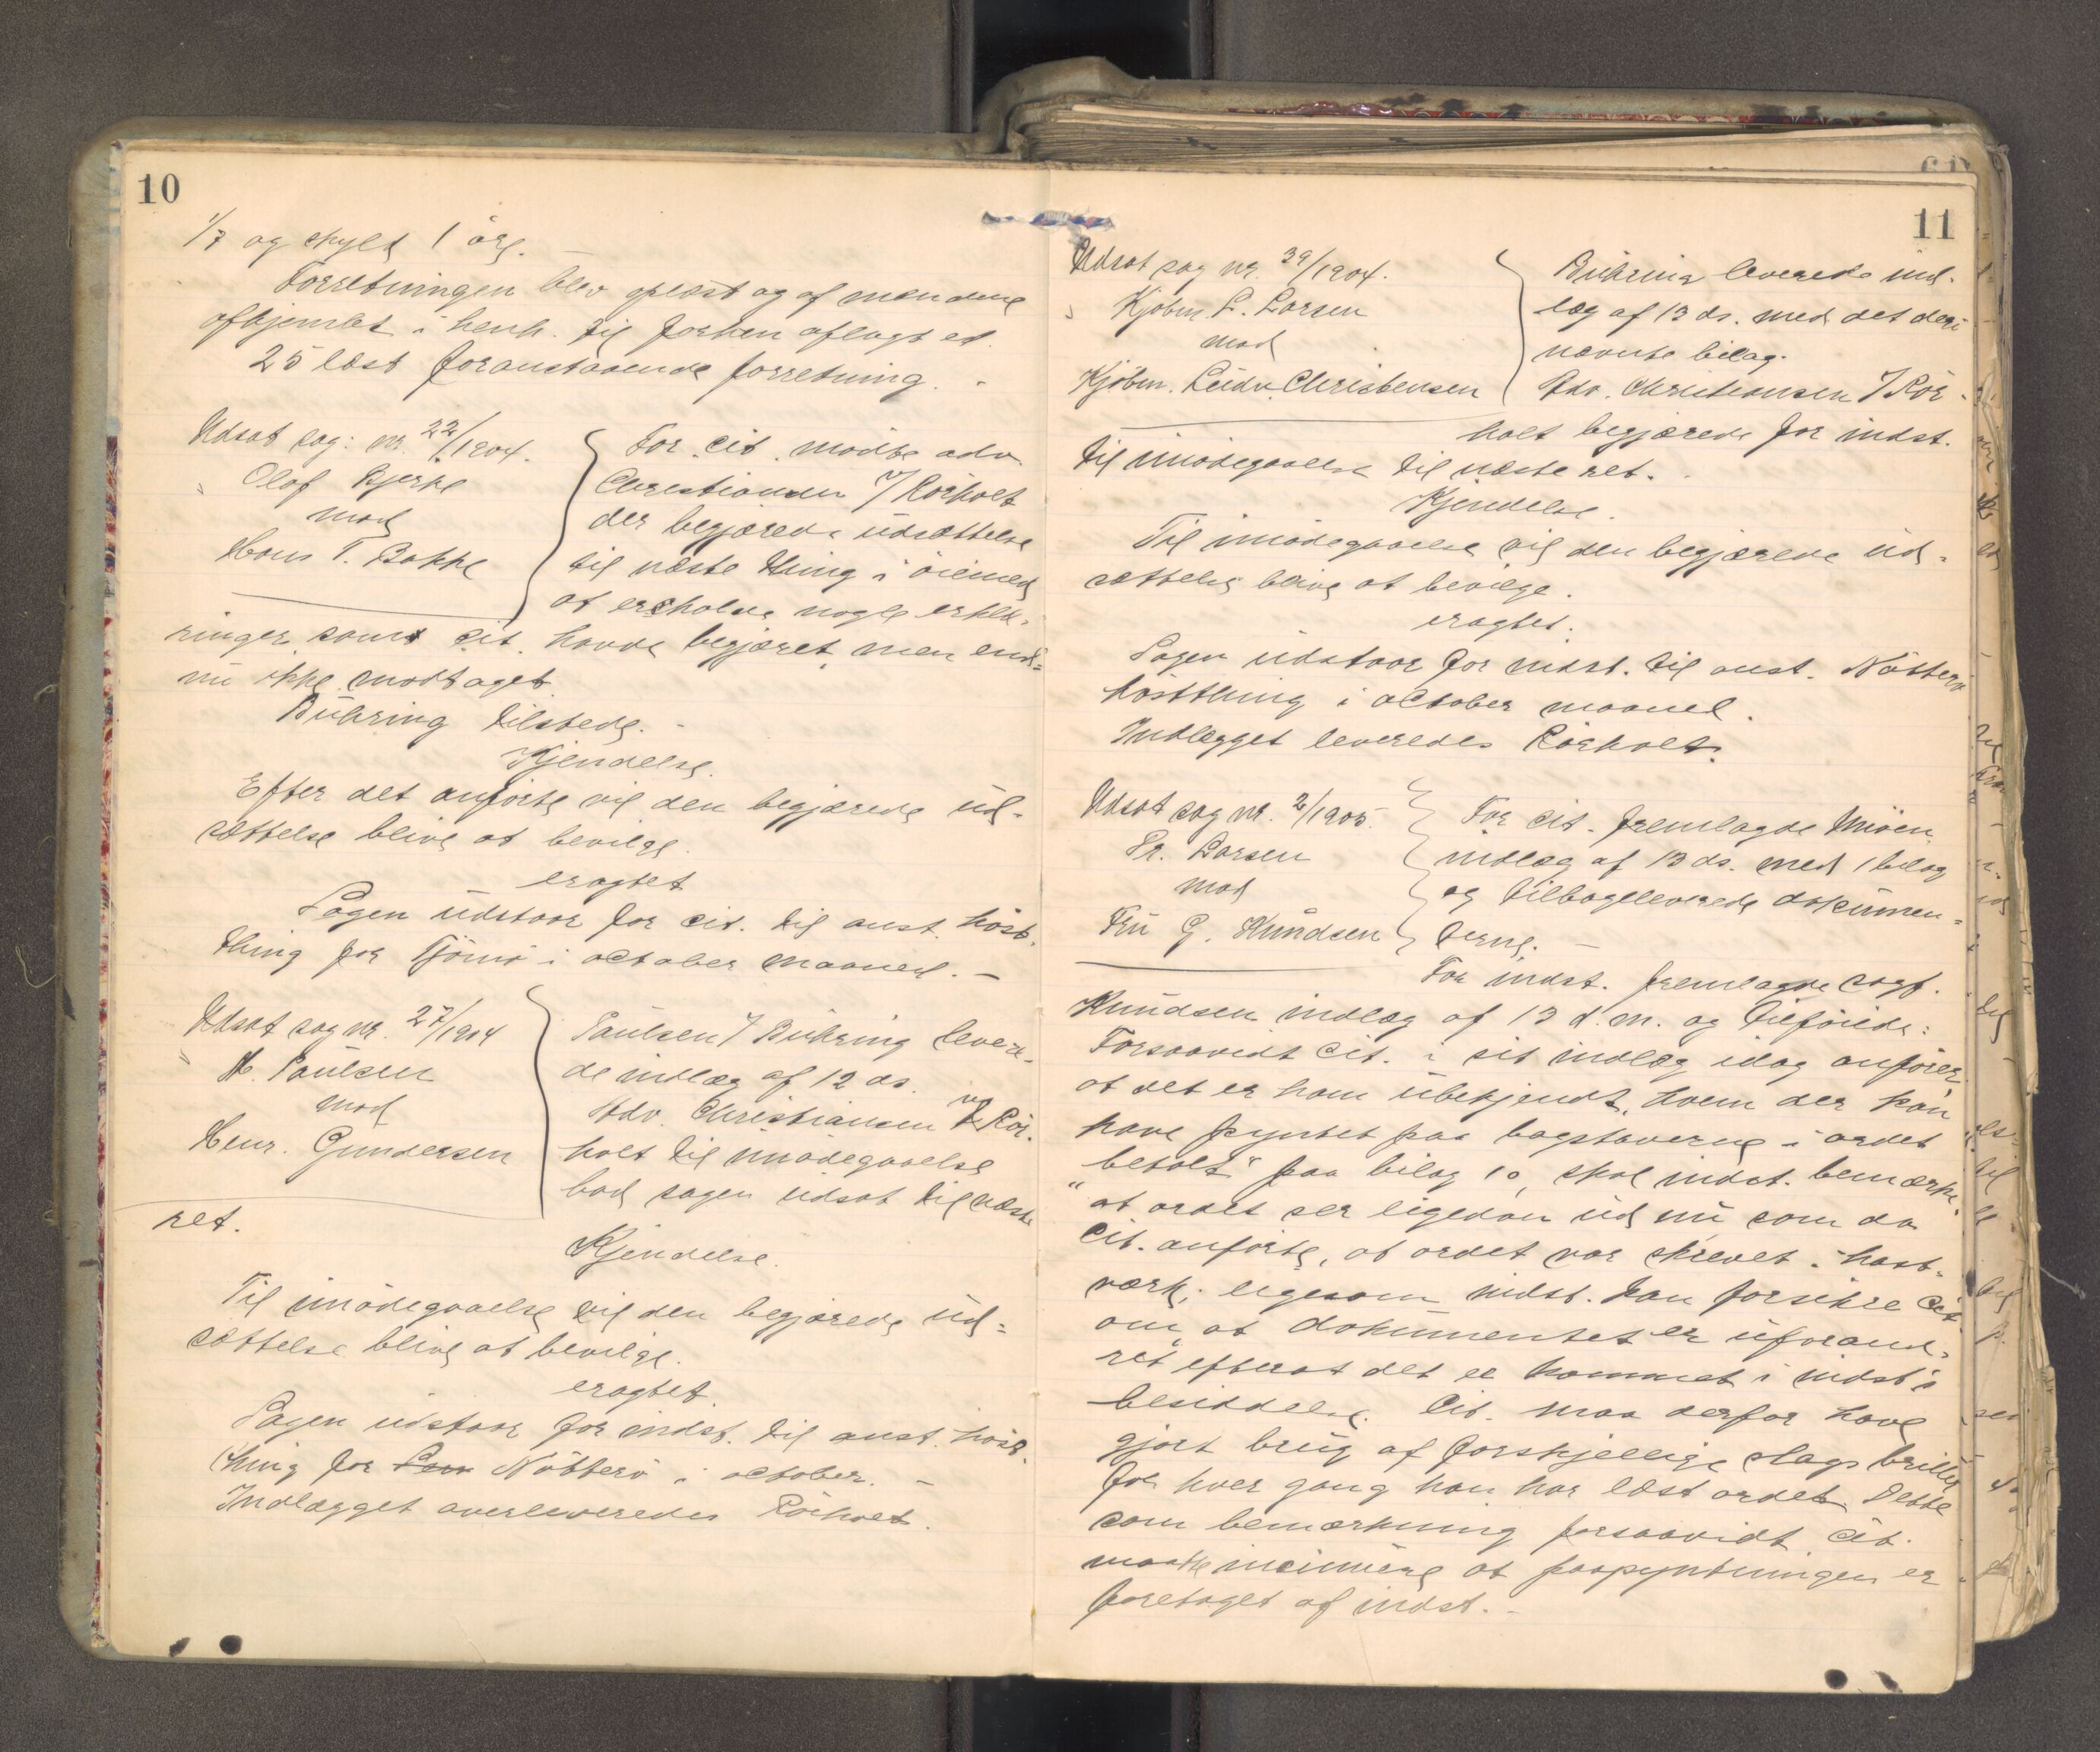 10
1/7 og skyld 1 øre. –
Forretningen blev oplæst og af mændene
afhjemlet i henh. til forhen aflagt ed.
25 læst foranstaaende forretning. -
Udsat sag: nr. 22/1904.
Olaf Bjerke
mod
Hans T. Bakke
For cit. mødte adv.
Christiansen v/ Rørholt
der begjærede udsættelse
til næste thing i øiemed
at erholde nogle erklæ-
ringer som cit. havde begjæret men end-
nu ikke modtaget.
Bühring tilstede. -
Kjendelse.
Efter det anførte vil den begjærede ud-
sættelse blive at bevilge.
eragtet
Sagen udstaar for cit. til anst. høst-
thing for Tjømø i october maaned. –
Udsat sag nr. 27/1904
H. Paulsen
mod
Henr. Gundersen
Paulsen v/ Bühring levere-
de indlæg af 12 ds.
Adv. Christiansen v/ Rør-
holt til imødegaaelse
bad sagen udsat til næste
ret.
Kjendelse.
Til imødegaaelse vil den begjærede ud-
sættelse blive at bevilge.
eragtet.
Sagen udstaar for indst. til anst. høst-
thing for Nøtterø i october. –
Indlægget overleveredes Rørholt.
11
Udsat sag nr. 39/1904.
Kjøbm. L. Larsen
mod
Kjøbm. Ludv. Christensen
Bühring leverede ind-
læg af 13 ds. med det deri
nævnte bilag.
Adv. Christiansen v/ Rør-
holt begjærede for indst.
til imødegaaelse til næste ret. -
Kjendelse.
Til imødegaaelse vil den begjærede ud-
sættelse blive at bevilge.
eragtet.
Sagen udstaar for indst. til anst. Nøtterø
høstthing i october maaned.
Indlægget leveredes Rørholt.
Udsat sag nr. 2/1905.
Fr. Larsen
mod
Fru G. Knudsen
For cit. fremlagde Thiøen
indlæg af 13 ds. med 1 bilag
og tilbageleverede dokumen-
terne. –
For indst. fremlagde sagf.
Knudsen indlæg af 13 d.m. og tilføiede:
Forsaavidt cit. i sit indlæg idag anfører
at det er ham ubekjendt, hvem der kan
have pyntet paa bogstaverne i ordet
„betalt" paa bilag 10, skal indst. bemærke,
at ordet ser ligedan ud nu som da
cit. anførte, at ordet var skrevet i hast-
værk, ligesom indst. kan forsikre cit.
om, at dokumentet er uforand-
ret efterat det er kommet i indst's
besiddelse. Cit. maa derfor have
gjort brug af forskjellige slags briller
for hver gang han har læst ordet. Dette
som bemærkning forsaavidt cit.
maatte insinuere at paapyntningen er
foretaget af indst. -